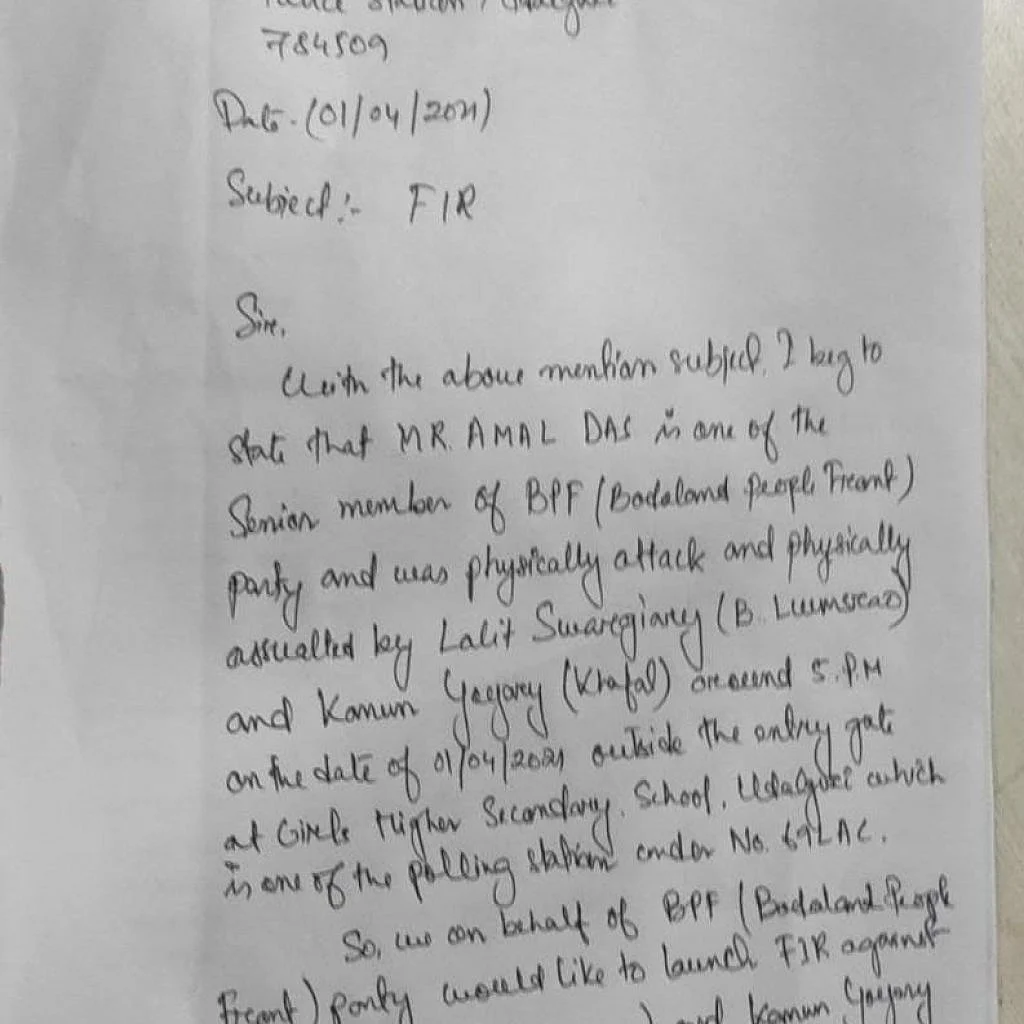 Police Station, Udalguri
784509
Date- (01/04/2021)
Subject:- FIR
Sir,
With the above mention subject, I beg to
state that MR. AMAL DAS is one of the
Senior member of BPF (Bodaland people Freont)
party and was physically attack and physically
assualted by Lalit Swaregiarey (B.
and Kamun (Khafal) areound 5.P.M
on the date of 01/04/2021 outside the entry gate
at Girels Higher Secondary, School, Udalguri which
is one of the polling station under No. 69 LAC.
So, we on behalf of BPF (Bodaland People
Freont) party would like to launch FIR against
) and Kamun